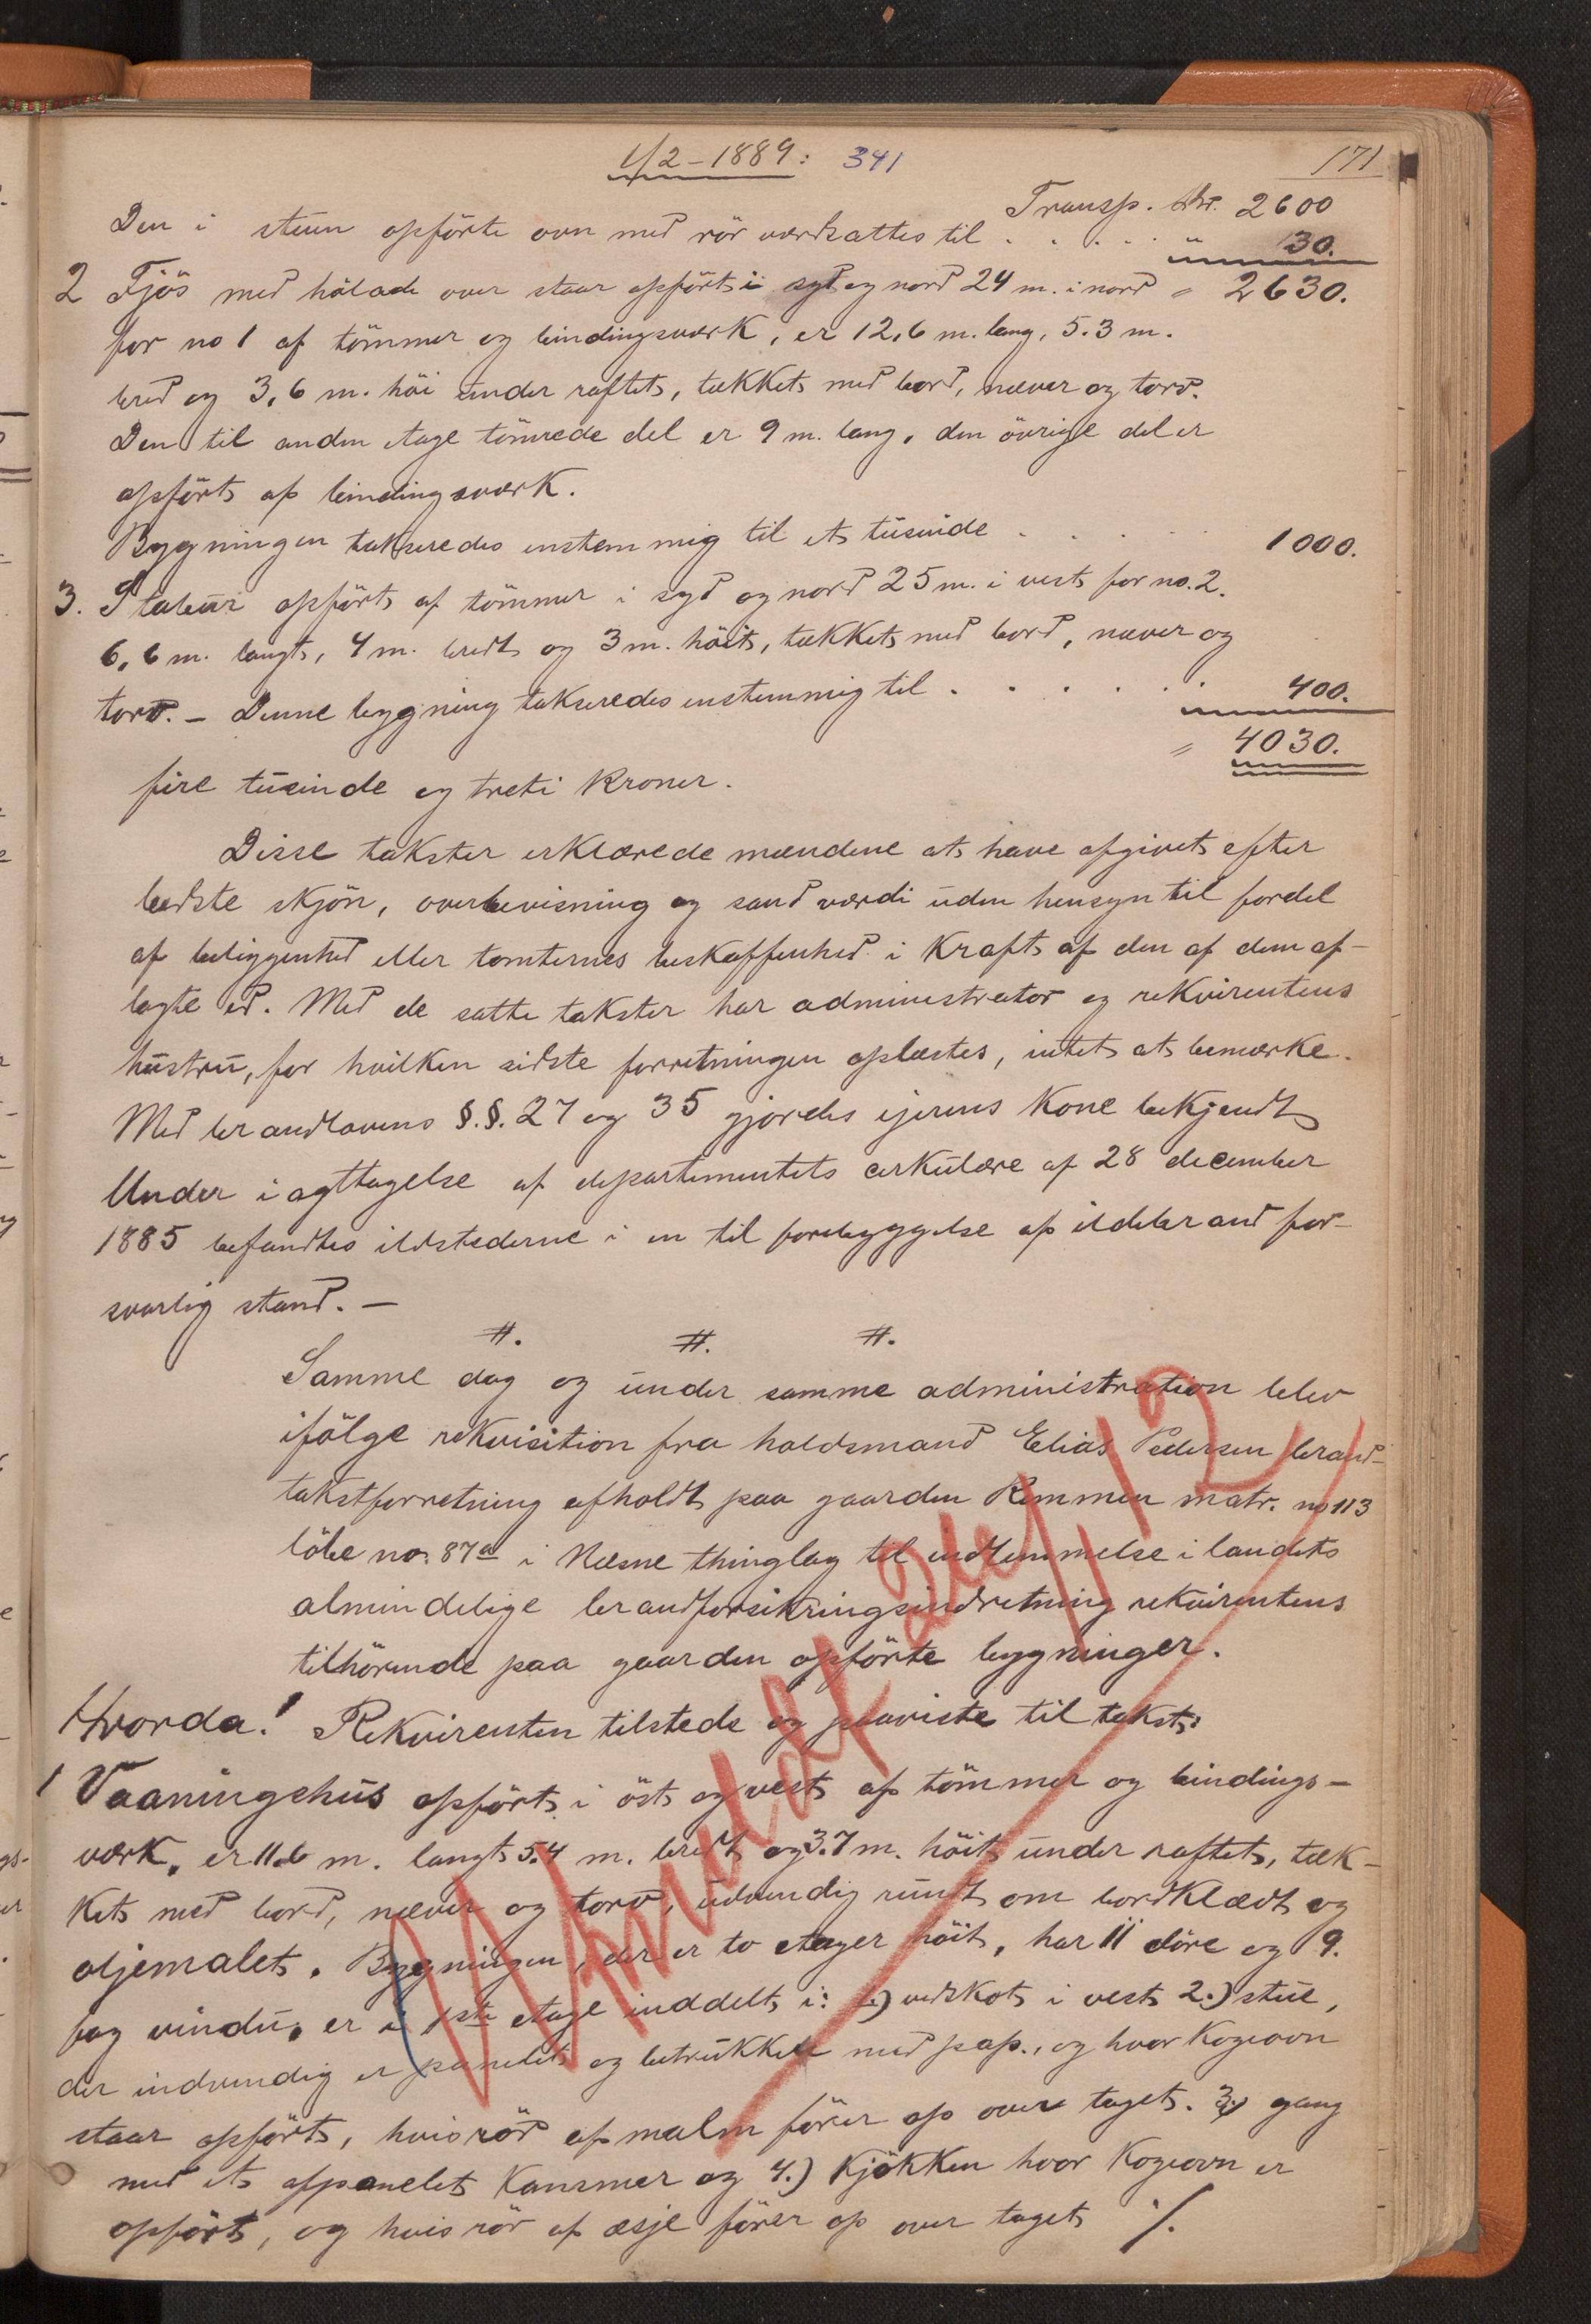 1/2-1889: 341
171
Transp. Kr. 2600
Den i stuen opförte ovn med rör værdsattes til . . . . . " 30.
2 Fjös med hölade over staar opfört i syd og nord 24 m. i nord = 2630.
for no 1 af tömmer og bindingsværk, er 12,6 m. lang, 5.3 m.
bred og 3,6 m. höi under raftet, tækket med bord, næver og torv.
Den til anden etage tömrede del er 9 m. lang, den övrige del er
opfört af bindingsværk.
Bygningen takseredes enstemmig til et tusinde . . . . . 1000.
3. Stabur opfört af tömmer i syd og nord 25 m. i vest for no. 2.
6,6 m. langt, 4 m. bredt og 3 m. höit, tækket med bord, næver og
torv. - Denne bygning takseredes enstemmig til . . . . . . 400.
= 4030.
fire tusinde og treti kroner.
Disse takster erklærede mændene at have afgivet efter
bedste skjön, overbevisning og sand værdi uden hensyn til fordel
af beliggenhed eller tomternes beskaffenhed i kraft af den af dem af-
lagte ed. Med de satte takster har administrator og rekvirentens
hustru, for hvilken sidste forretningen oplæstes, intet at bemærke.
Med brandlovens §.§. 27 og 35 gjordes ejerens kone bekjendt
Under iagttagelse af departementets cirkulære af 28 december
1885 befandtes ildstederne i en til forebyggelse af ildebrand for-
svarlig stand. -
#. #. #.
Samme dag og under samme administration blev
ifölge rekvisition fra holdsmand Elias Pedersen brand-
takstforretning afholdt paa gaarden Remmen matr. no 113
löbe no. 87a i Næsne thinglag til indlemmelse i landets
almindelige brandforsikringsindretning rekvirentens
tilhörende paa gaarden opförte bygninger.
Hvorda! Rekvirenten tilstede og paaviste til takst:
1 Vaaningshus opfört i öst og vest af tömmer og bindings-
værk, er 11.6 m. langt 5.4 m. bredt og 3.7 m. höit under raftet, tæk-
ket med bord, næver og torv, udvendig rundt om bordklædt og
oljemalet. Bygningen, der er to etager höit, har 11 döre og 9.
fag vindu, er i 1ste etage inddelt i: 1.) vedskot i vest 2.) stue,
der indvendig er panelet og betrukket med pap., og hvor kogeovn
staar opfört, hvis rör af malm förer op over taget. 3.) gang
med et afpanelet kammer og 4.) kjökken hvor kogeovn er
opfört, og hvis rör af æsje förer op over taget ./.